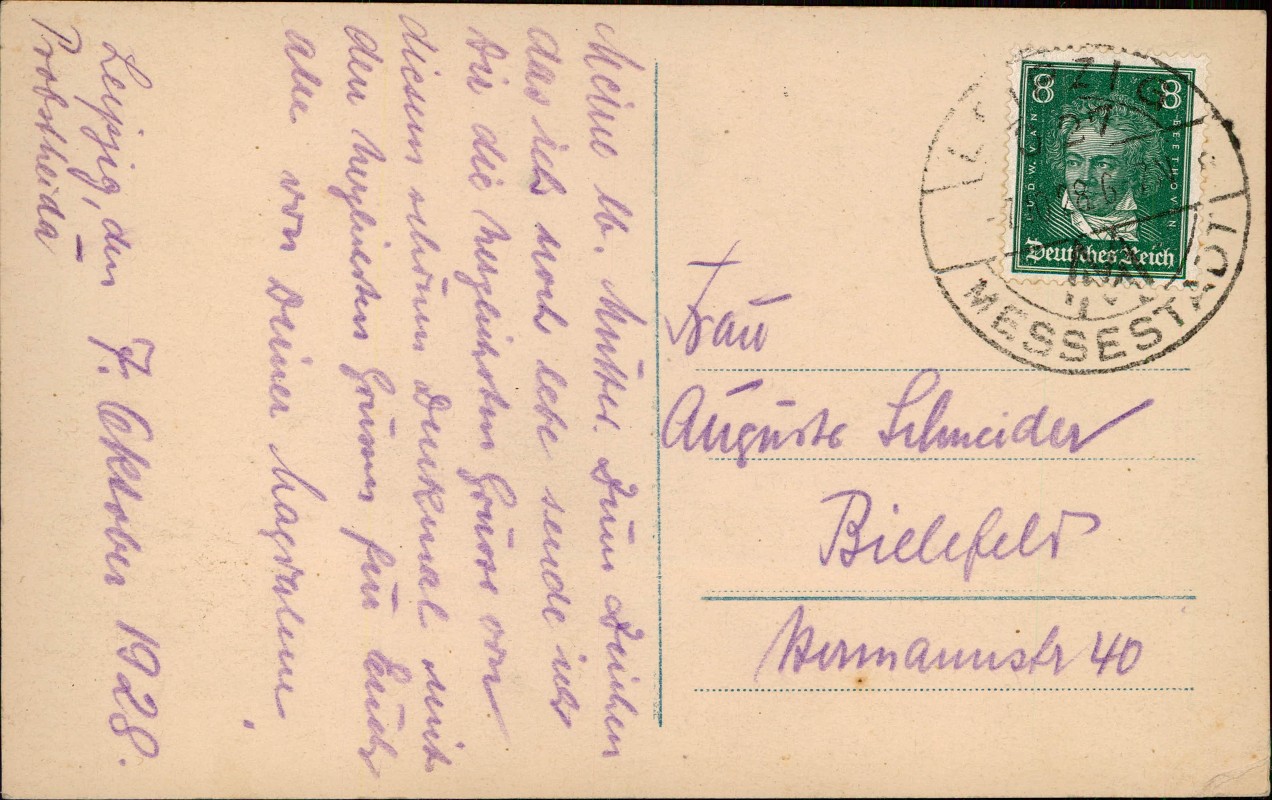 Meine lb. Mutter. Zum Zeichen
das ich noch lebe sende ich
Dir die herzlichsten Grüsse von
diesem schönen Denkmal mit
den herzlichsten Grüssen für Euch
alle von Deiner Magdalene.
Leipzig, den 7. Oktober 1928.
Probstheida
8 8
LUDW. VAN BEETHOVEN
Deutsches Reich
LEIPZIG
MESSESTADT
Frau
Auguste Schneider
Bielefeld
Hermannstr 40